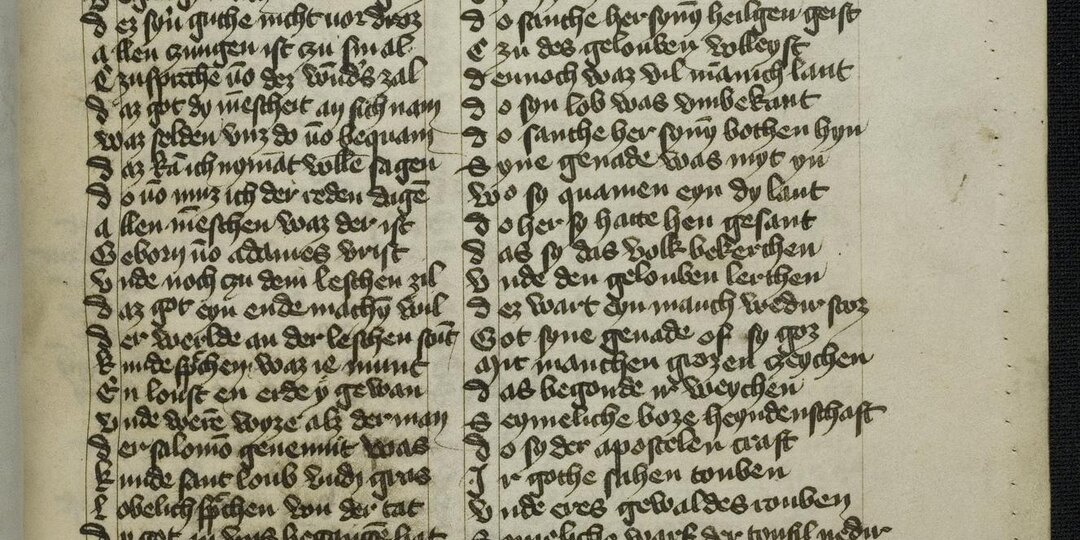 d ez syn guthe nicht vor droz
a llen czungen ist czu smal
C zu sprechē
d az got dy mēscheit an sich nam
waz selden vnz do vō bequam
d az kā ich nymāt volle sagen
d o vō muz ich der reden dagē
a llen mēschen waz der ist
G eborn vō adames vrist
v nde noch czu dem leschen zil
d az got eyn ende machen wil
d er werlde an der leschen
K unde sp̄chen waz ie munt
E n loust en erde y gewan
v nde werē wyze alz der man
d er salomō genennt was
k unde sant loub vnde gras
l obelich sp̄chen von der tat
d y got an vns begangē hat
d o sanche her synn heiligen geist
C zu des gelouben volleyst
d ennoch waz vil manich lant
d o syn lob was vmbekant
d o sanche her synn bothen hyn
S yne genade was myt yn
W o sy quamen eyn dy lant
d o her sy hatte hen gesant
d as sy das volk bekerchen
v nde den gelouben lerthen
d ez wart eyn manch wedir
G ot syne genade of sy goz
M it manchen grozen czeychen
d as begonde weychen
S eymeliche boze heyndenschaft
d o sy der apostelen craft
I r gothe sahen touben
v nde eres gewaldes rouben
S emeliche wark der tyufil nedir